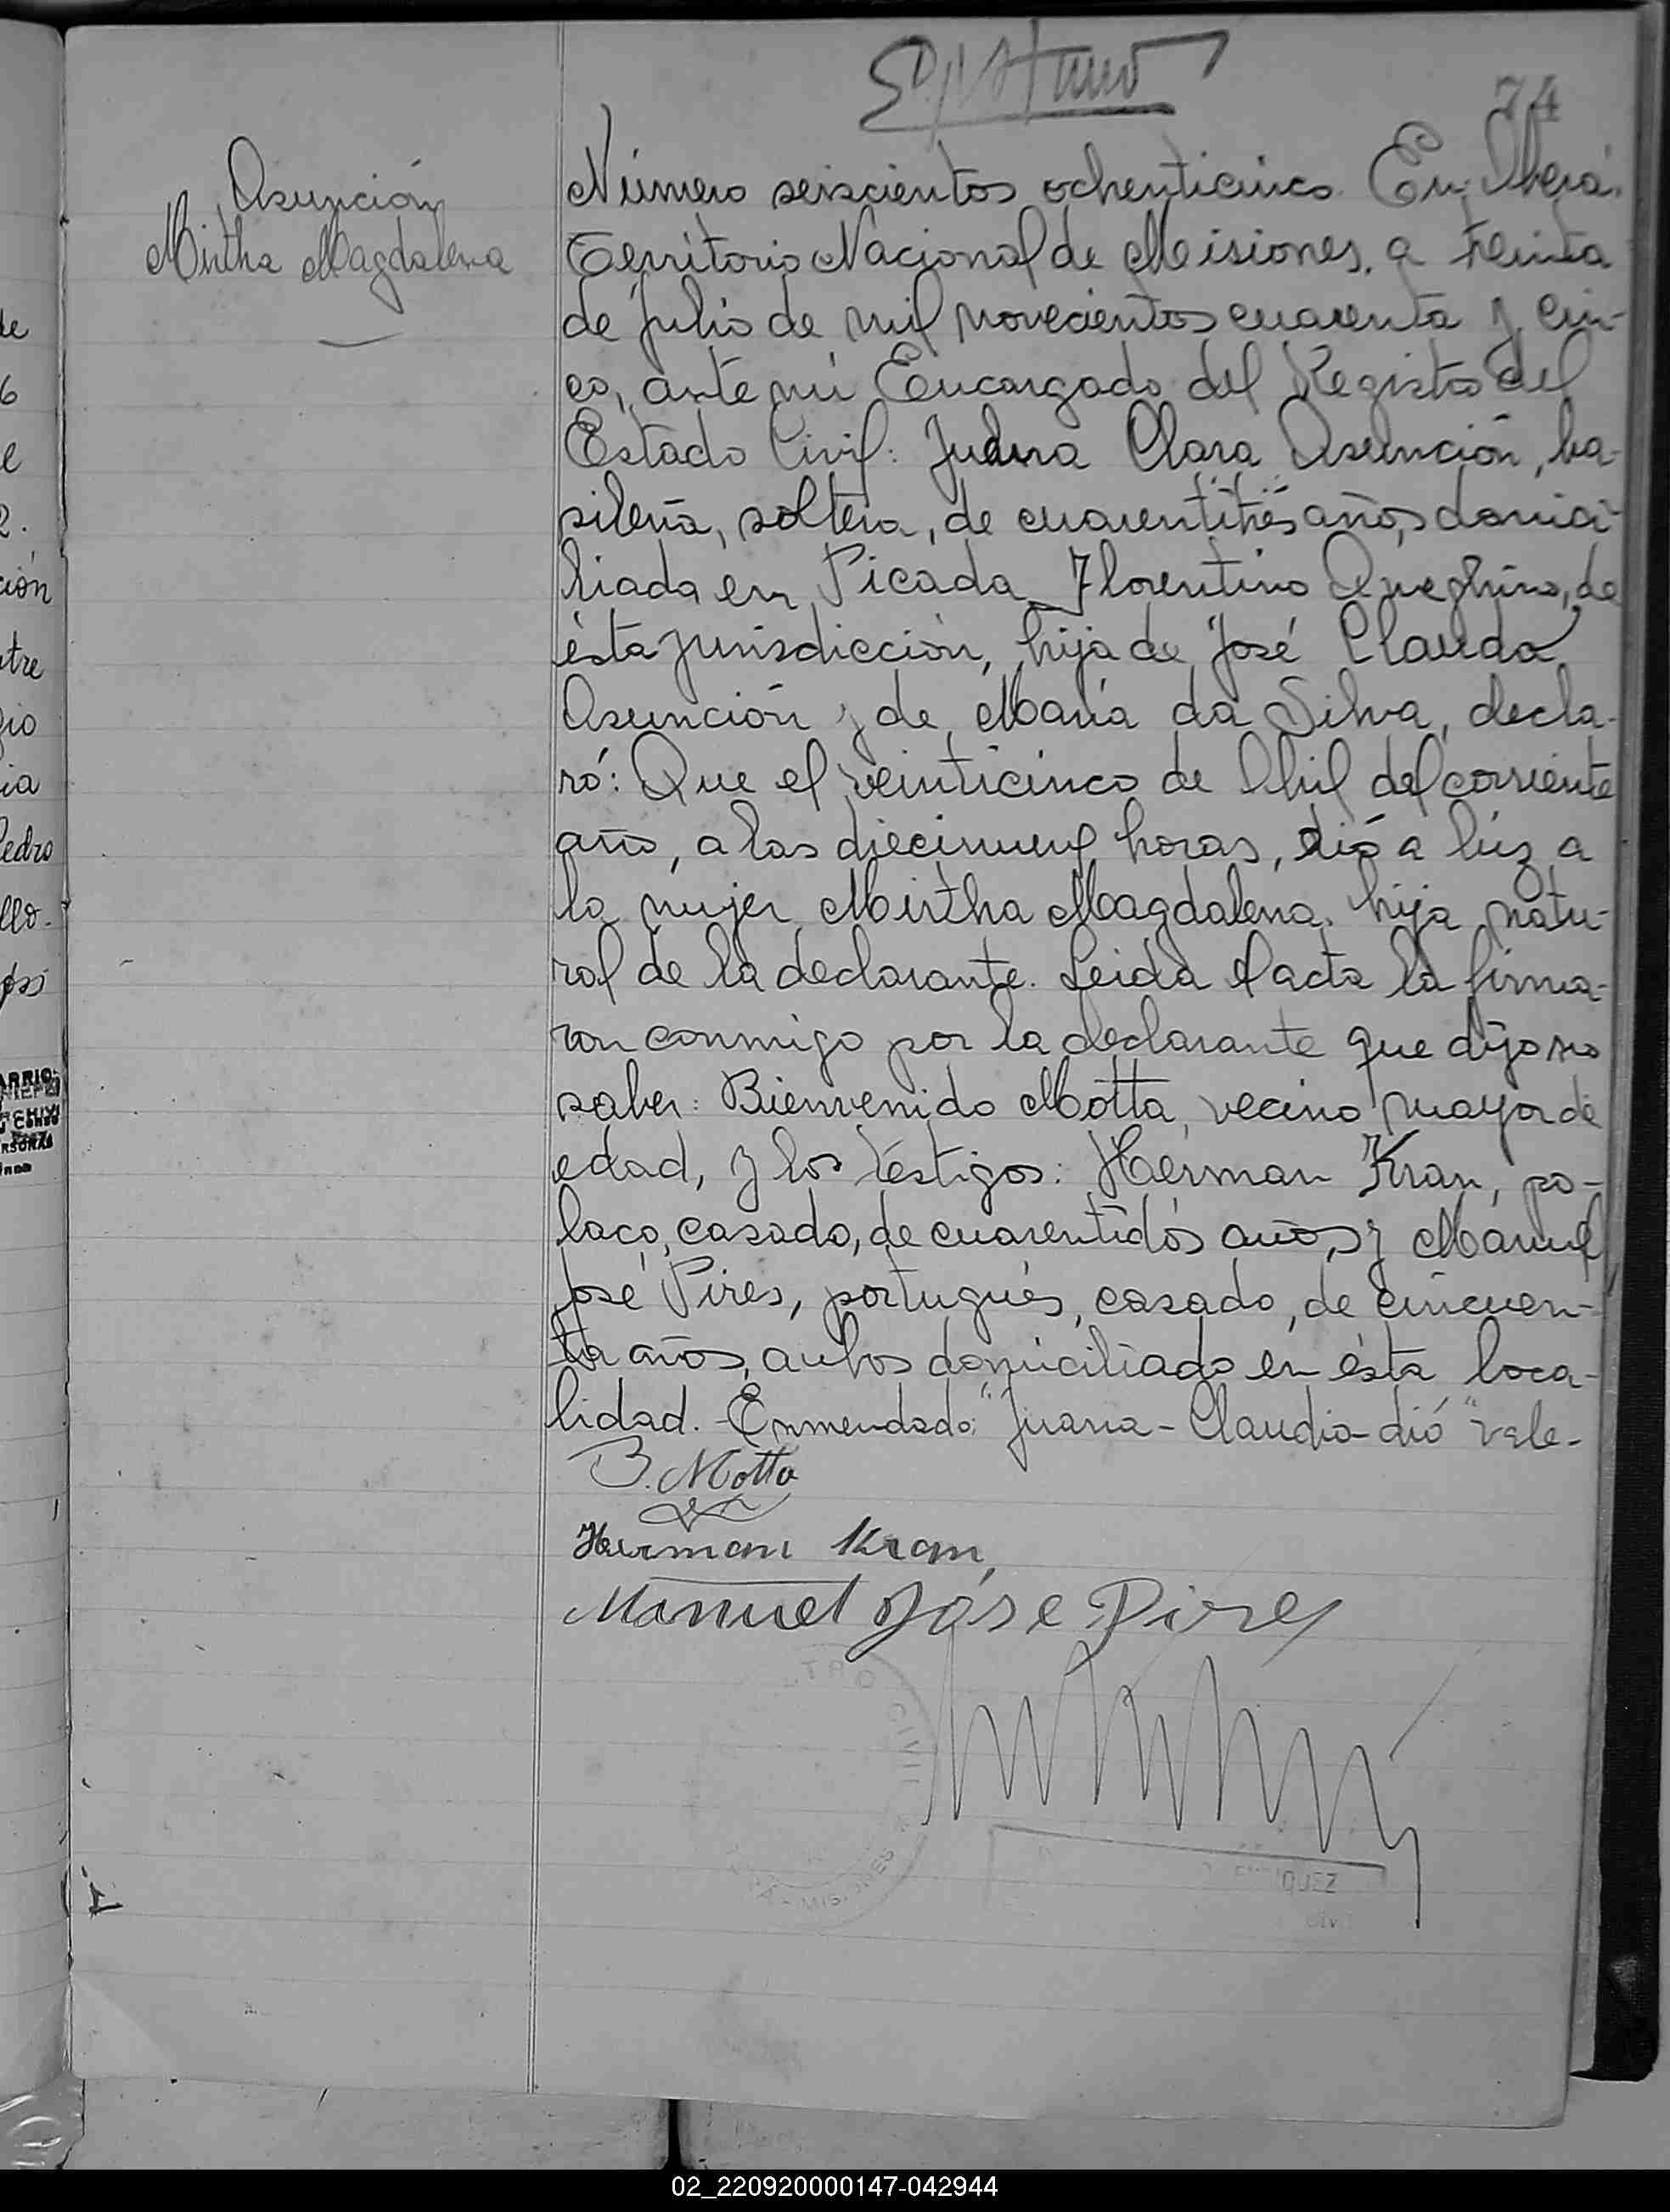 74
Asunción
Mirtha Magdalena
Número seiscientos ochenticinco. En Oberá,
Territorio Nacional de Misiones, a treinta
de Julio de mil novecientos cuarenta y cin-
co, ante mí Encargado del Registro del
Estado Civil: Juana Clara Asunción, bra-
sileña, soltera, de cuarentitrés años, domici-
liada en Picada Florentino Ameghino, de
ésta jurisdicción, hija de José Claudio
Asunción y de María da Silva, decla-
ró: Que el veinticinco de Abril del corriente
año, a las diecinueve horas, dió a lúz a
la mujer Mirtha Magdalena, hija natu-
ral de la declarante. Leida el acta la firma-
ron conmigo por la declarante que dijo no
saber: Bienvenido Motta, vecino mayor de
edad, y los testigos: Herman Kran, po-
laco, casado, de cuarentidós años, y Manuel
José Pires, portugués, casado, de cincuen-
ta años, ambos domiciliado en ésta loca-
lidad. - Enmendado: "Juana - Claudio - dió" vale -
B. Motta
Herman Kran
Manuel Jose Pires
CIVIL
MISIONES
QUEZ
de
6
e
2.
ción
tre
gio
ia
Pedro
llo.
ARRIO
02_220920000147-042944